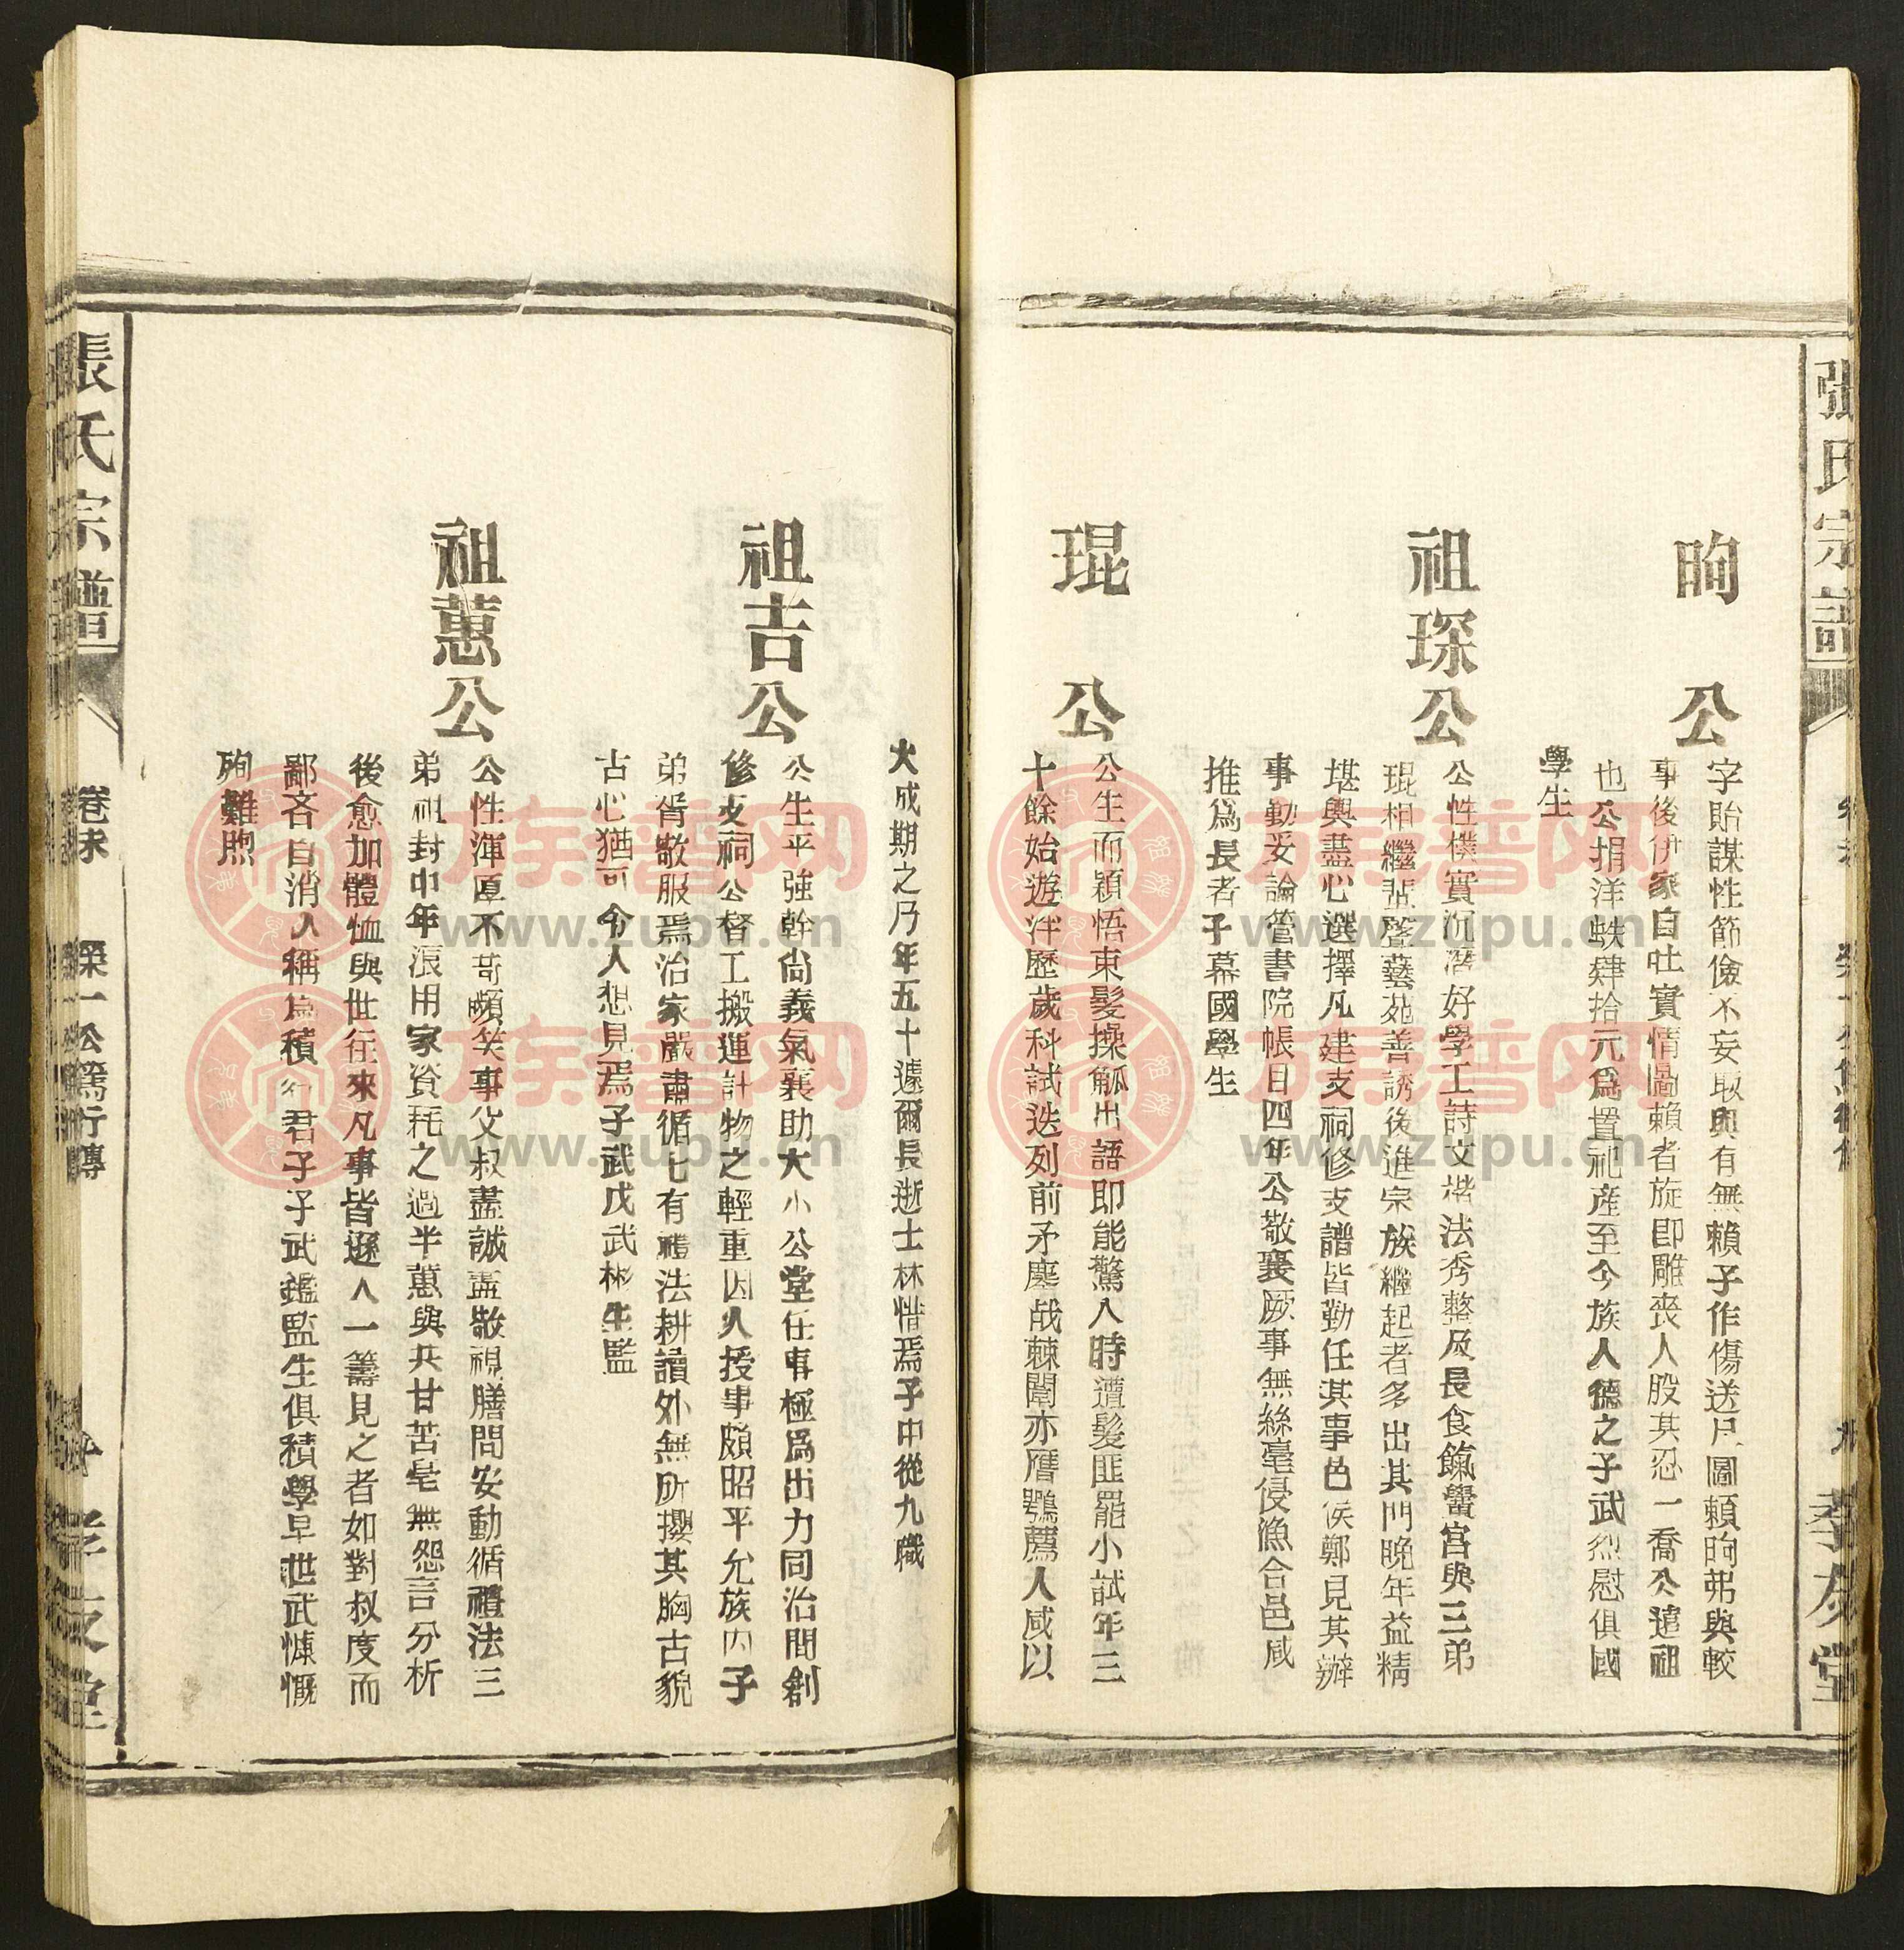 張氏宗譜
孝友堂
昫公
字貽謀性節儉不妄取與有無賴子作傷送尸圖賴昫弟與較
事後伊家自吐實情圖賴者旋即雕喪人股其忍一喬公遠祖
也公捐洋蚨肆拾元爲置祀產至今族人德之子武烈慰俱國
學生
祖琛公
公性樸實沉潛好學工詩文楷法秀整及長食餼黌宮與三弟
琨相繼蜚聲藝苑善誘後進宗族繼起者多出其門晚年益精
堪輿盡心選擇凡建支祠修支譜皆勤任其事邑侯鄭見其辦
事勤妥論管書院帳目四年公敬襄厥事無絲毫侵漁合邑咸
推爲長者子幕國學生
琨公
公生而穎悟束髮操觚出語即能驚人時遭髮匪罷小試年三
十餘始遊泮歷歲科試迭列前矛鏖战棘闈亦膺鶚薦人咸以
大成期之乃年五十遽爾長逝士林惜焉子中從九職
祖吉公
公生平強幹尙義氣襄助大小公堂任事極爲出力同治間創
修支祠公督工搬運計物之輕重因人授事頗昭平允族內子
弟胥敬服焉治家嚴肅循七有禮法耕讀外無所攖其胸古貌
古心猶可令人想見焉子武戊武彬生監
祖蕙公
公性渾厚不苟嚬笑事父叔盡誠盡敬視膳問安動循禮法三
弟祖封中年浪用家資耗之過半蕙與共甘苦毫無怨言分析
後愈加體恤與世往來凡事皆遜人一籌見之者如對叔度而
鄙吝自消人稱爲積行君子子武鑑監生俱積學早世武慷慨
殉難煦
張氏宗譜
卷末
榮一公篤行傳
十
孝友堂
族譜网
www.zupu.cn
族譜网
www.zupu.cn
族譜网
www.zupu.cn
族譜网
www.zupu.cn